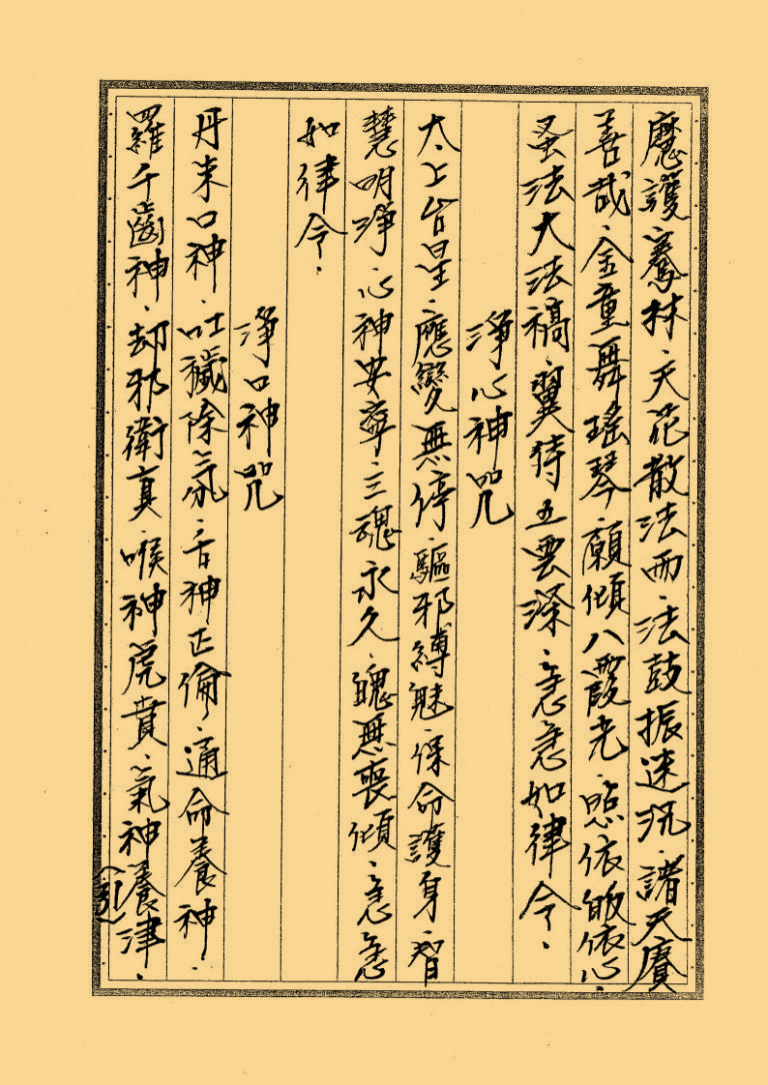 應護騫林、天花散法雨、法鼓振迷沉、諸天賡
善哉、金童舞瑤琴、願傾八霞光、照依皈依心、
蚤法大法稿、翼侍五雲深、急急如律令、
淨心神咒
太上台星、應變無停、驅邪縛魅、保命護身、智
慧明淨、心神安寧、三魂永久、魄無喪傾、急急
如律令、
淨口神咒
丹朱口神、吐穢除氛、舌神正倫、通命養神、
羅千齒神、却邪衛真、喉神虎賁、氣神養津、
(引)